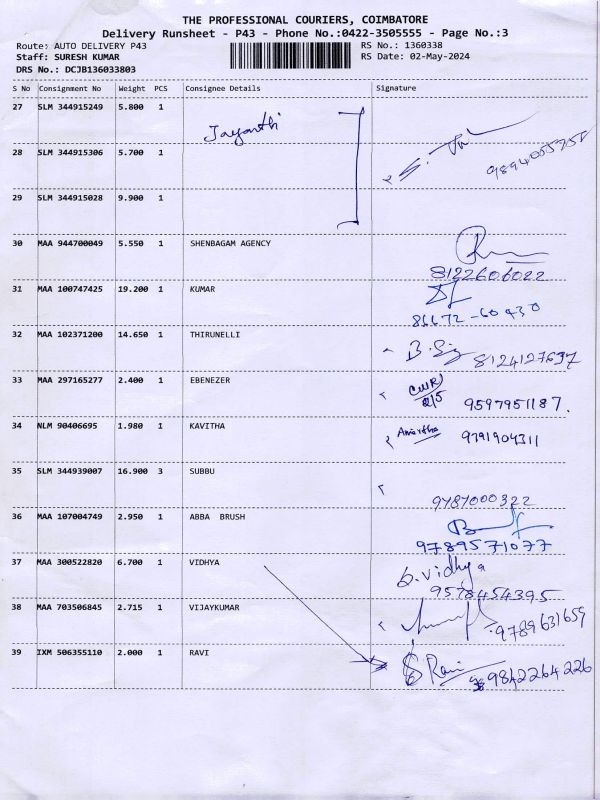 THE PROFESSIONAL COURIERS, COIMBATORE
Delivery Runsheet - P43 - Phone No.:0422-3505555 - Page No.:3
Route: AUTO DELIVERY P43 RS No.: 1360338
Staff: SURESH KUMAR RS Date: 02-May-2024
DRS No.: DCJB136033803
S No Consignment No Weight PCS Consignee Details Signature
27 SLM 344915249 5.800 1
Jayanthi
28 SLM 344915306 5.700 1
S.
29 SLM 344915028 9.900 1
30 MAA 944700049 5.550 1 SHENBAGAM AGENCY
8122606022
31 MAA 100747425 19.200 1 KUMAR
86672-60430
32 MAA 102371200 14.650 1 THIRUNELLI
8124127637
33 MAA 297165277 2.400 1 EBENEZER
9597951187.
34 NLM 90406695 1.980 1 KAVITHA
9791904311
35 SLM 344939007 16.900 3 SUBBU
9787000322
36 MAA 107004749 2.950 1 ABBA BRUSH
9789571077
37 MAA 300522820 6.700 1 VIDHYA
G.Vidhya
9578454395
38 MAA 703506845 2.715 1 VIJAYKUMAR
9789631659
39 IXM 506355110 2.000 1 RAVI
Ravi
9842264226